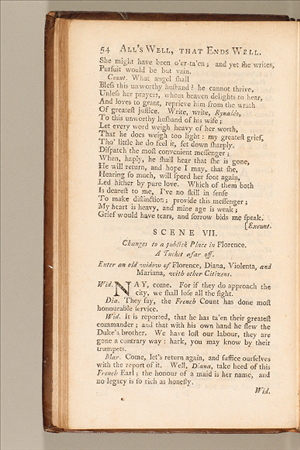 54 ALL'S WELL, THAT ENDS WELL.
She might have been o'er-ta'en; and yet she writes,
Pursuit would be but vain.
Count. What angel shall
Bless this unworthy husband? he cannot thrive,
Unless her prayers, whom heaven delights to hear,
And loves to grant, reprieve him from the wrath
Of greatest justice. Write, write, Rynaldo,
To this unworthy husband of his wife;
Let every word weigh heavy of her worth,
That he does weigh too light: my greatest grief,
Tho' little he do feel it, set down sharply.
Dispatch the most convenient messenger;
When, haply, he shall hear that she is gone,
He will return, and hope I may, that she,
Hearing so much, will speed her foot again,
Led hither by pure love. Which of them both
Is dearest to me, I've no skill in sense
To make distinction; provide this messenger;
My heart is heavy, and mine age is weak;
Grief would have tears, and sorrow bids me speak.
[Exeunt.
SCENE VII.
Changes to a publick Place in Florence.
A Tucket afar off.
Enter an old widow of Florence, Diana, Violenta, and
Mariana, with other Citizens.
Wid. NAY, come. For if they do approach the
city, we shall lose all the sight.
Dia. They say, the French Count has done most
honourable service.
Wid. It is reported, that he has ta'en their greatest
commander; and that with his own hand he slew the
Duke's brother. We have lost our labour, they are
gone a contrary way: hark, you may know by their
trumpets.
Mar. Come, let's return again, and suffice ourselves
with the report of it. Well, Diana, take heed of this
French Earl; the honour of a maid is her name, and
no legacy is so rich as honesty.
Wid.